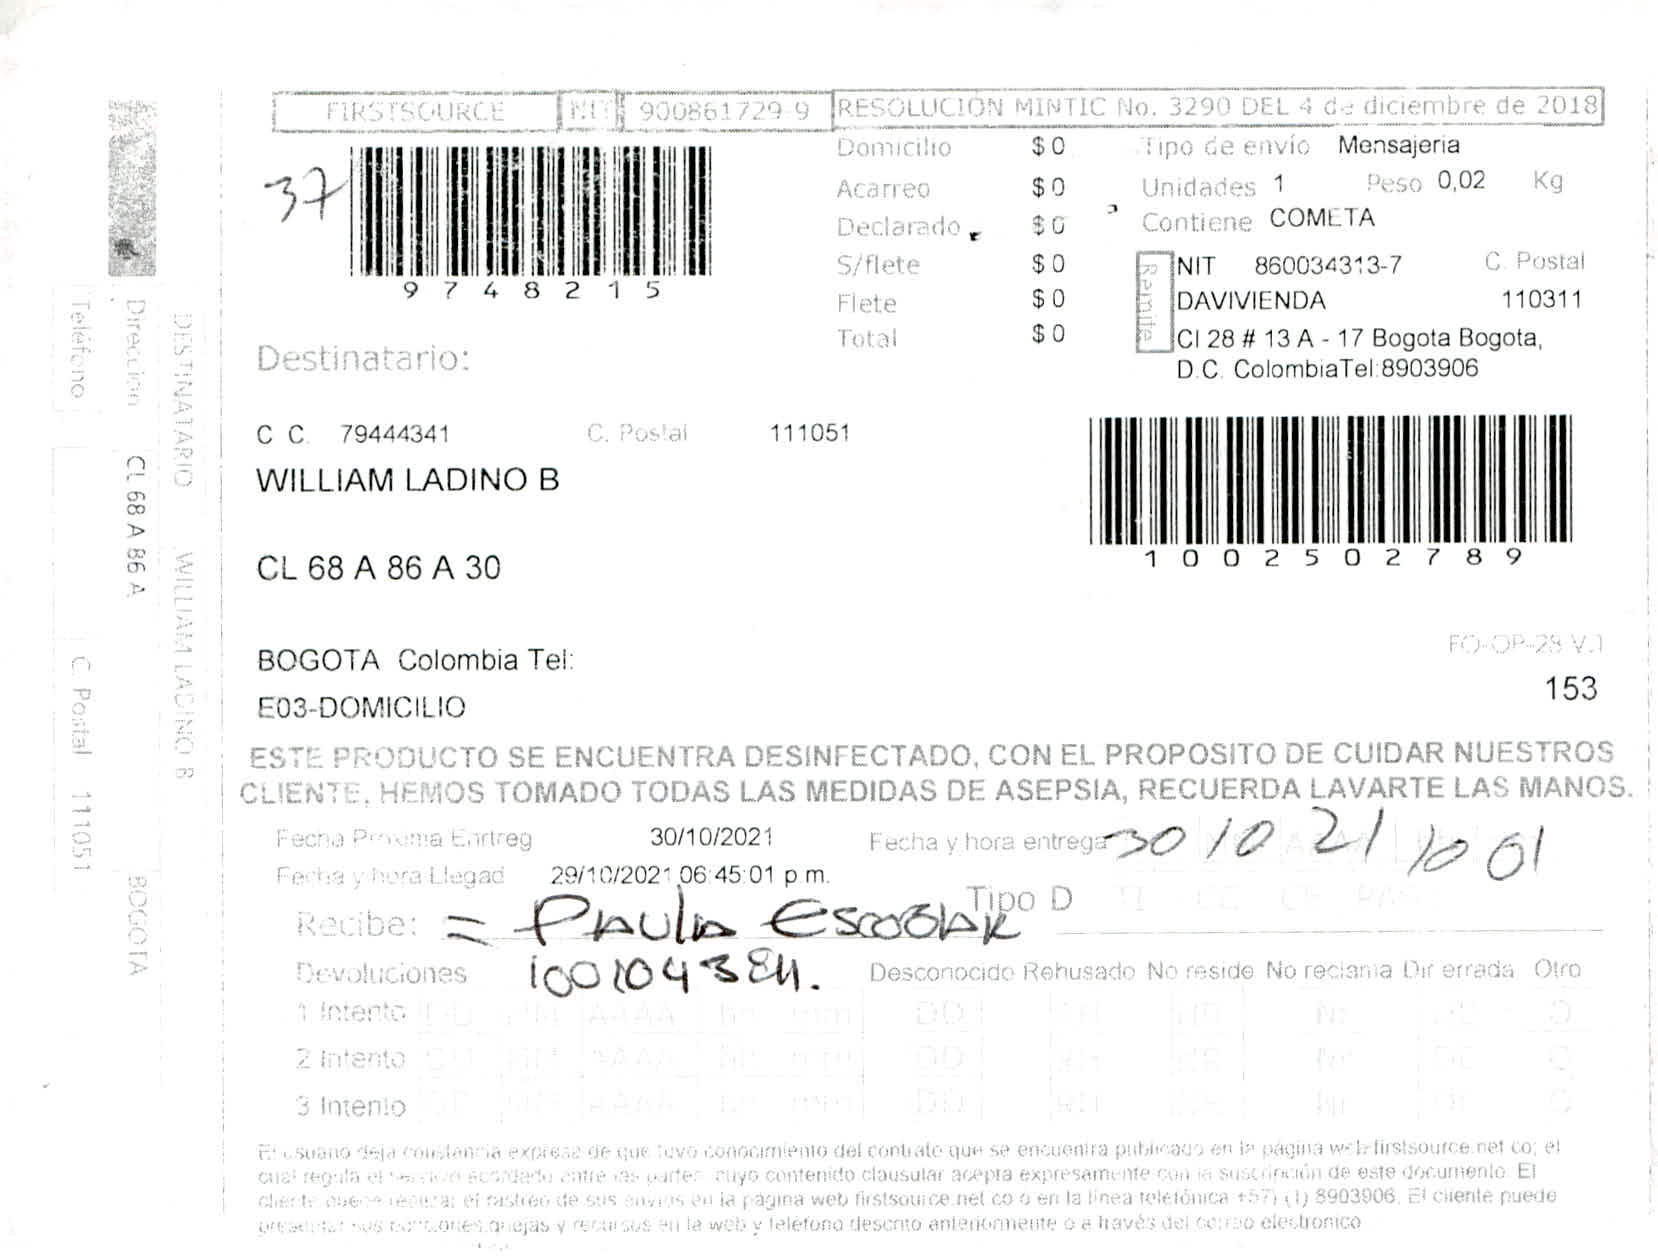 FIRSTSOURCE NIT 900861729-9 RESOLUCION MINTIC No. 3290 DEL 4 de diciembre de 2018
37
9748215
Domicilio $ 0
Acarreo $ 0
Declarado $ 0
S/flete $ 0
Flete $ 0
Total $ 0
Tipo de envío Mensajeria
Unidades 1 Peso 0,02 Kg
Contiene COMETA
Remite
NIT 860034313-7 C. Postal
DAVIVIENDA 110311
Cl 28 # 13 A - 17 Bogota Bogota,
D.C. ColombiaTel:8903906
Destinatario:
C C. 79444341 C. Postal 111051
WILLIAM LADINO B
1002502789
CL 68 A 86 A 30
BOGOTA Colombia Tel:
FO-OP-28 V.1
E03-DOMICILIO
153
ESTE PRODUCTO SE ENCUENTRA DESINFECTADO, CON EL PROPOSITO DE CUIDAR NUESTROS
CLIENTE, HEMOS TOMADO TODAS LAS MEDIDAS DE ASEPSIA, RECUERDA LAVARTE LAS MANOS.
Fecha Proxima Entreg 30/10/2021 Fecha y hora entrega 30 10 21 10 01
Fecha y hora Llegad 29/10/2021 06:45:01 p m.
Tipo D TI CC CE PAS
Recibe: = PAULA ESCOBAR
Devoluciones Desconocido Rehusado No reside No reclama Dir errada Otro
1 Intento DD MM AAAA hh mm DD
2 Intento DD MM AAAA hh mm DD
3 Intento DD MM AAAA hh mm DD
El usuario deja constancia expresa de que tuvo conocimiento del contrato que se encuentra publicado en la página web firstsource.net.co; el
cual regula el servicio acordado entre las partes, cuyo contenido clausular acepta expresamente con la suscripción de este documento. El
cliente puede realizar el rastreo de sus envios en la pagina web firstsource.net co o en la linea telefónica +57) (1) 8903906. El cliente puede
presentar sus peticiones quejas y recursos en la web y teléfono descrito anteriormente o a través del correo electronico
DESTINATARIO WILLIAM LADINO B
Direccion CL 68 A 86 A BOGOTA
Teléfono C. Postal 111051